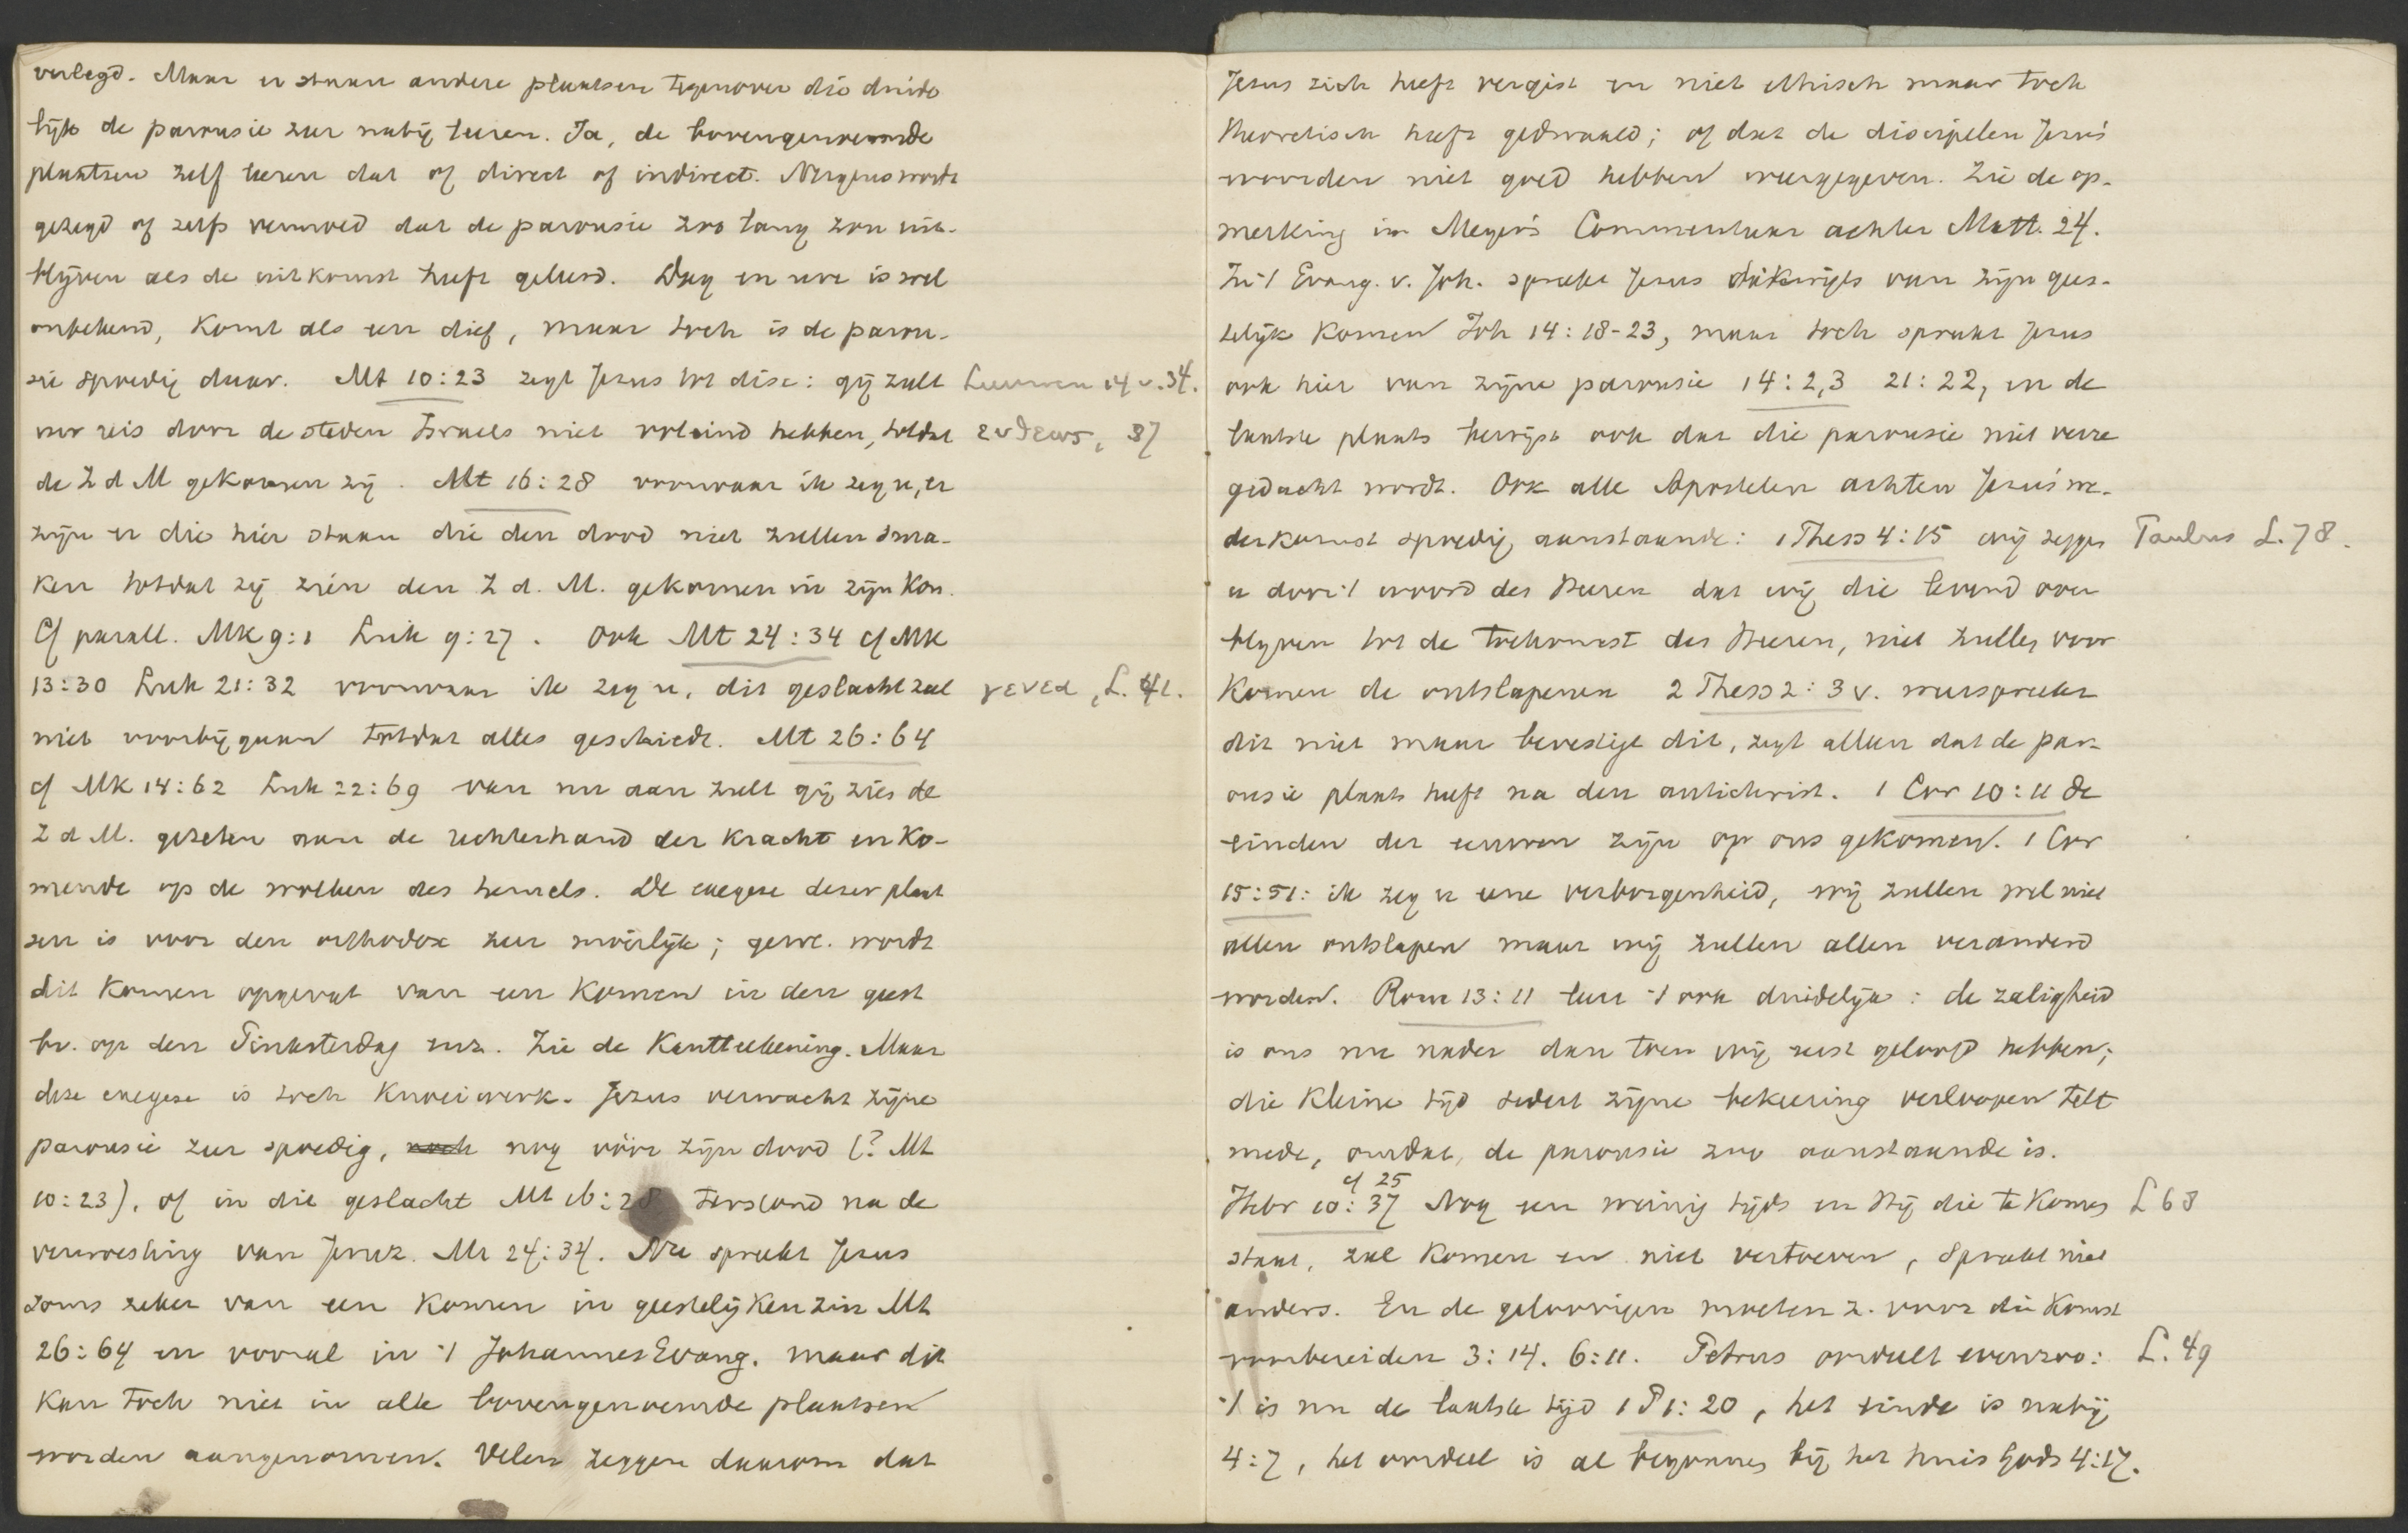 verlegd. Maar er staan andere plaatsen tegenover die duide
lijk de parousie zeer nabij leren. Ja, de bovengenoemde
plaatsen zelf leeren dat of direct of indirect. Nergens wordt
gezegd of zelfs vermoed dat de parousie zoo lang zou uit-
blijven als de uitkomst heeft geleerd. Dag en ure is wel
onbekend, komt als een dief, maar toch is de parou-
sie spoedig daar. Mt 10:23 zegt Jezus tot disc: gij zult
uw reis door de steden Israels niet voleind hebben, totdat
de Z d M gekomen zij. Mt 16:28 voorwaar ik zeg u, er
zijn er die hier staan die den dood niet zullen sma-
ken totdat zij zien den Z d. M. gekomen in zijn Kon.
Cf parall. Mk 9:1 Luk 9:27. Ook Mt 24:34 cf Mk
13:30 Luk 21:32 voorwaar ik zeg u, dit geslacht zal
γενεα, L. 41.
niet voorbijgaan totdat alles geschiedt. Mt 26:64
cf Mk 14:62 Luk 22:69 van nu aan zult gij zien de
Z d M. gezeten aan de rechterhand der kracht en ko-
mende op de wolken des hemels. De exegese dezer plaat
sen is voor den orthodox zeer moeilijk; gew. wordt
dit komen opgevat van een komen in den geest
bv. op den Pinksterdag enz. Zie de Kantteekening. Maar
deze exegese is toch knoeiwerk. Jezus verwacht zijne
parousie zeer spoedig, noch nog vóór zijn dood (? Mt
10:23), of in dit geslacht Mt 16:28 terstond na de
verwoesting van Jeruz. Mt 24:34. Nu spreekt Jezus
soms zeker van een komen in geestelijken zin Mt
26:64 en vooral in 't Johannes Evang. maar dit
kan toch niet in alle bovengenoemde plaatsen
worden aangenomen. Velen zeggen daarom dat
Jezus zich heeft vergist en niet ethisch maar toch
theoretisch heeft gedwaald; of dat de discipelen Jezus'
woorden niet goed hebben weergegeven. Zie de op-
merking in Meyer's Commentaar achter Matt. 24.
In 't Evang. v. Joh. spreekt Jezus dikwijls van zijn gees-
telijk komen Joh 14:18-23, maar toch spreekt Jezus
ook hier van zijne parousie 14:2,3 21:22, en de
laatste plaats bewijst ook dat die parousie niet verre
gedacht wordt. Ook alle Apostelen achten Jezus' we-
derkomst spoedig aanstaande: 1 Thess 4:15 wij zeggen
Paulus L. 78.
u door 't woord des Heeren dat wij die levend over
blijven tot de toekomst des Heeren, niet zullen voor
komen de ontslapenen 2 Thess 2:3 v. weerspreekt
dit niet maar bevestigt dit, zegt alleen dat de par-
ousie plaats heeft na den antichrist. 1 Cor 10:11 de
einden der eeuwen zijn op ons gekomen. 1 Cor
15:51: ik zeg u eene verborgenheid, wij zullen wel niet
allen ontslapen maar wij zullen allen veranderd
worden. Rom 13:11 leert 't ook duidelijk: de zaligheid
is ons nu nader dan toen wij eerst geloofd hebben;
die kleine tijd sedert zijne bekeering verloopen telt
mede, omdat, de parousie zoo aanstaande is.
cf 25
Hebr 10:37 Nog een weinig tijds en Hij die te komen
L 68
staat, zal komen en niet vertoeven, spreekt niet
anders. En de geloovigen moeten z. voor die komst
voorbereiden 3:14. 6:11. Petrus oordeelt evenzoo:
L. 49
't is nu de laatste tijd 1 P 1:20, het einde is nabij
4:7, het oordeel is al begonnen bij het huis Gods 4:17.